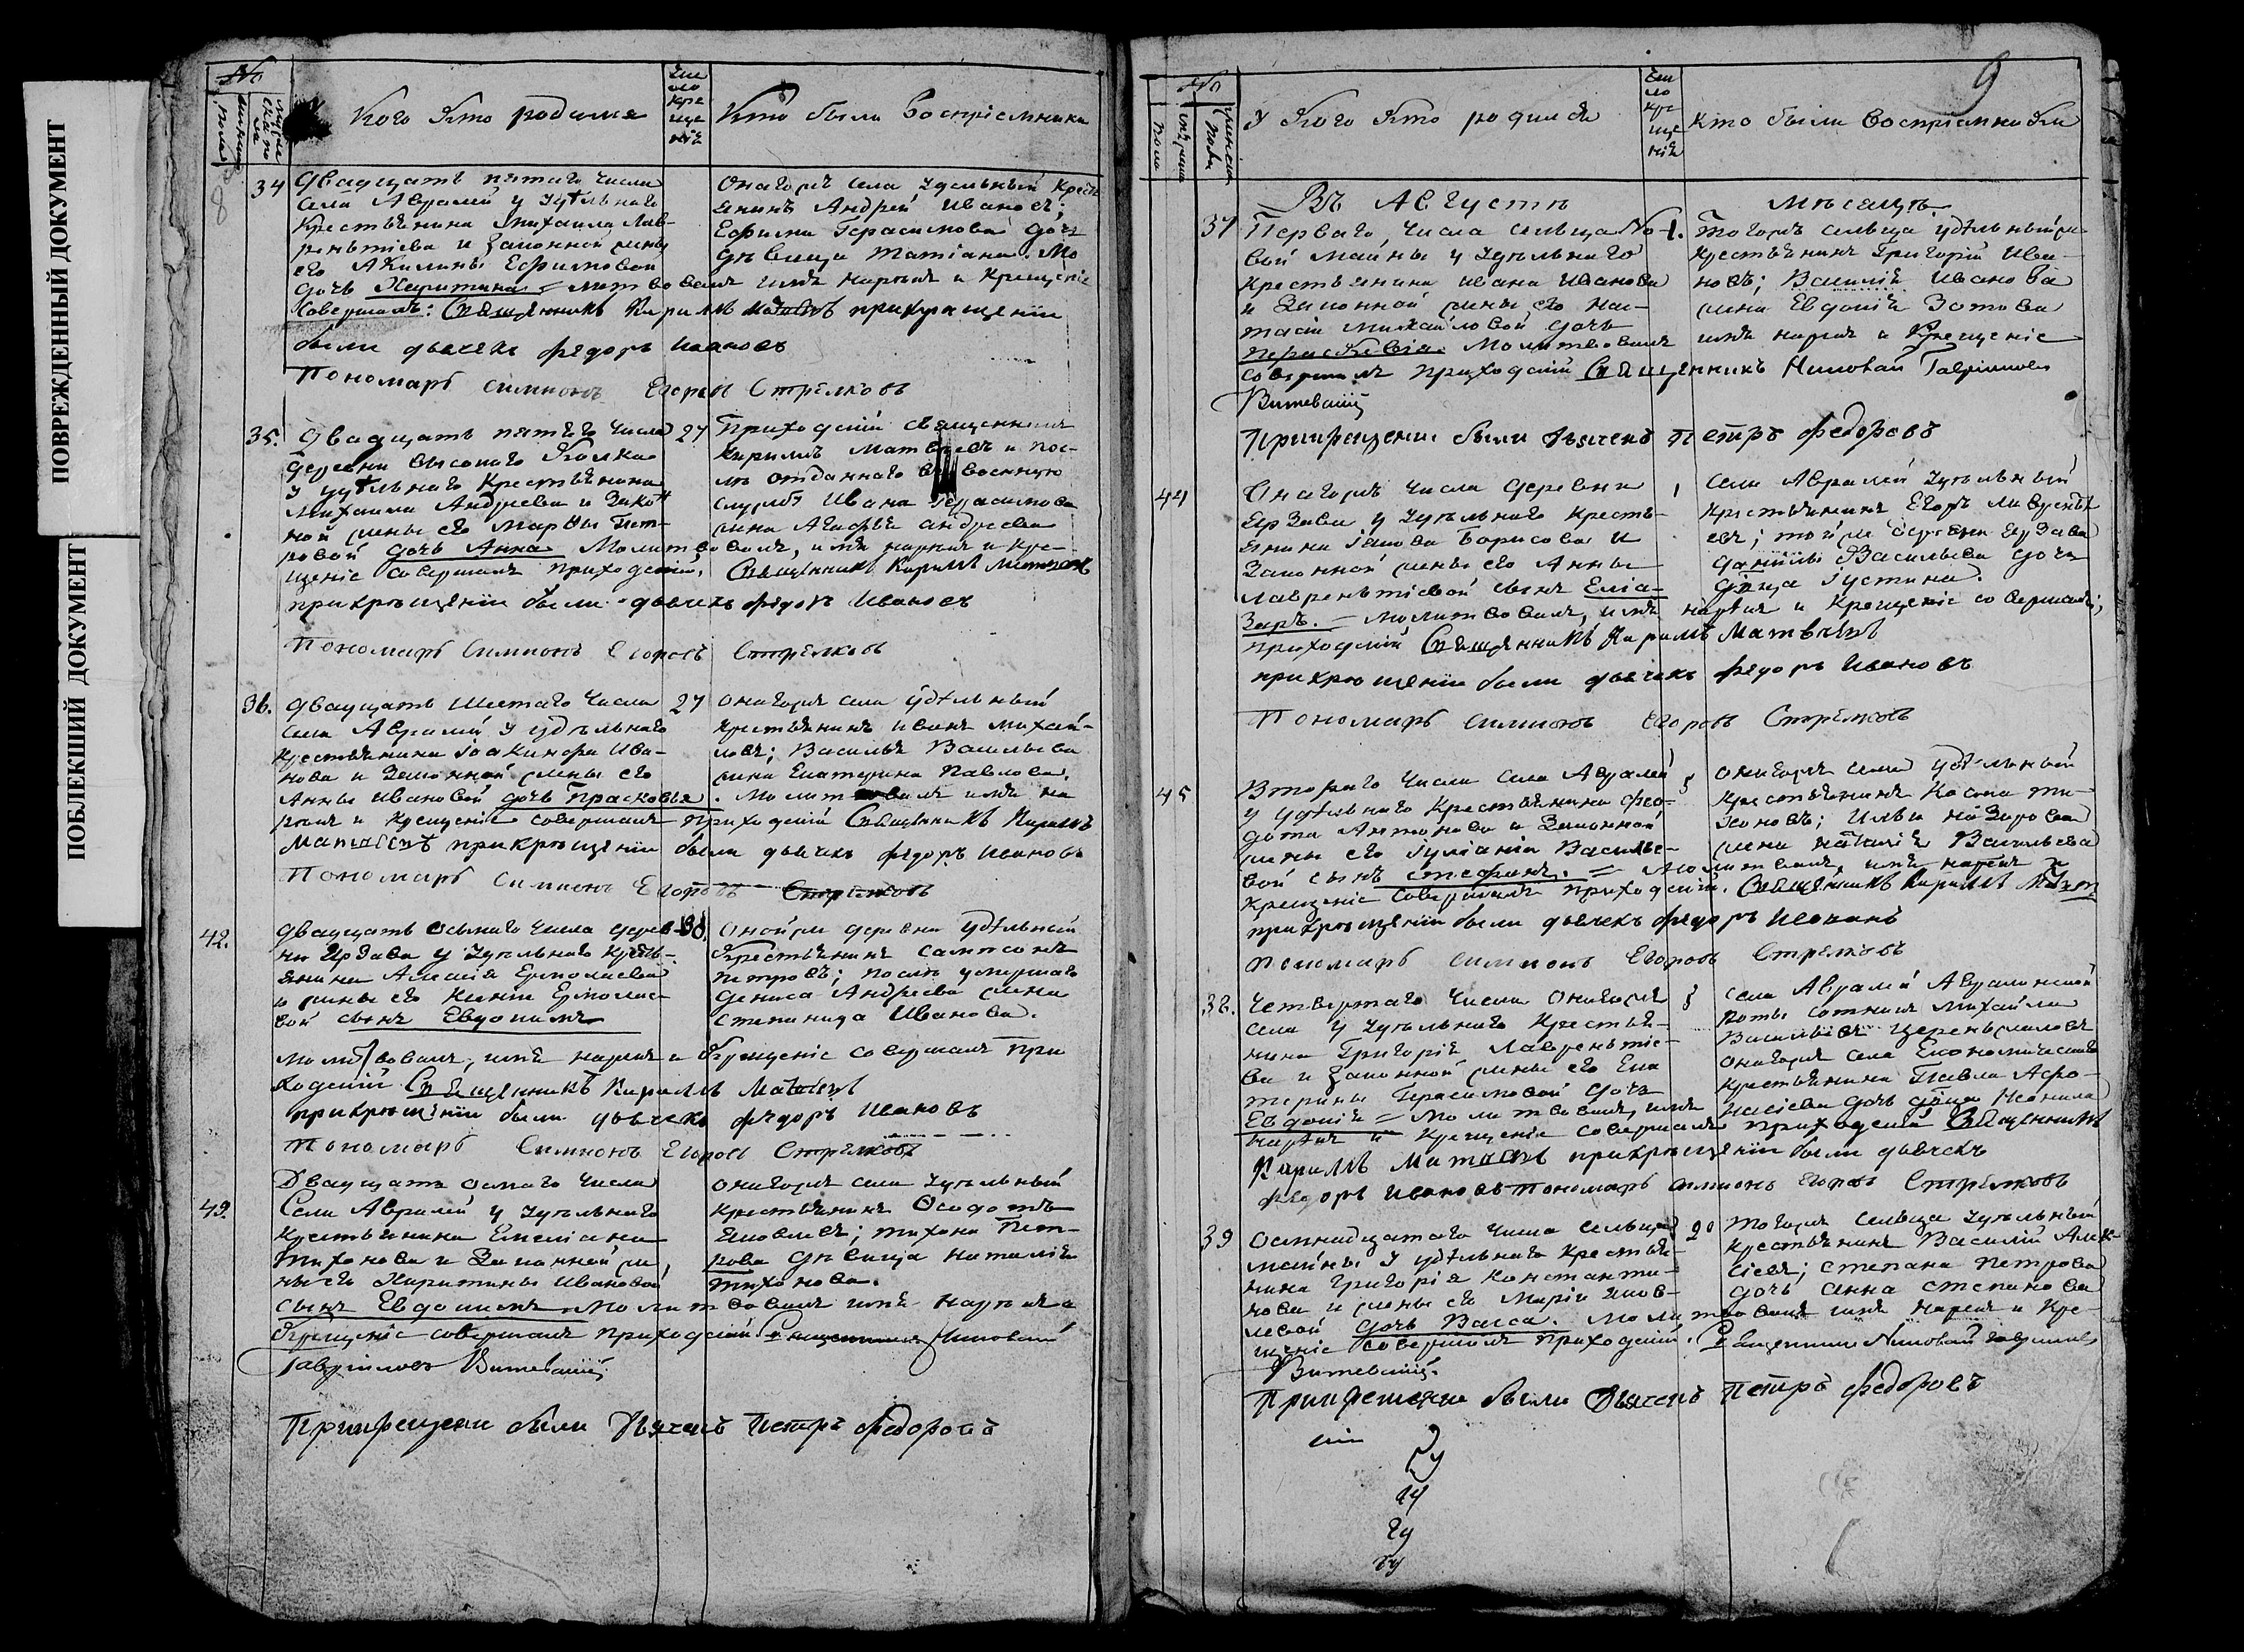 ПОВРЕЖДЕННЫЙ ДОКУМЕНТ
ПОБЛЕКШИЙ ДОКУМЕНТ
№
Кого Кто родился
Число крещеній
Кто были Воспріемники
34 Двадцать пятаго числа
села Авралей у Удѣльнаго
Крестьянина Михаила Лав-
рентіева и Законной жены
его Акилины Ефимовой
дочь Харитина = молитвовалъ имя нарекъ и Крещеніе
Совершалъ: Священникъ Кирилъ Матвеевъ прикрещеніи
были дьячекъ федоръ Ивановъ
Пономарь Симионъ Егоровъ Стрелковъ
Онагожъ села Удельный Кресть
янинъ Андрей Ивановъ;
Ефима Герасимова дочь
дѣвица Татіана. Мо
35. Двадцать пятаго числа 27
деревни Высокаго Колка
у удѣльнаго Крестьянина
Михаила Андреева и Закон
ной жены его Марѳы Пет-
ровой дочь Анна Молитвовалъ, имя нарекъ и Кре-
щеніе совершалъ приходскій, Священникъ Кирилъ Матвеевъ
прикрещеніи были дьячекъ федоръ Ивановъ
Пономарь Симионъ Егоровъ Стрелковъ
Приходскій священникъ
Кирилъ Матвеевъ и пос-
лѣ отданнаго въ военную
службу Ивана Герасимова
жена Агафья андреева
36. двадцать шестаго числа 27
села Авралей у удѣльнаго
крестьянина Іоакинфа Ива-
нова и Законной жены его
Анны Ивановой дочь Прасковья. Молитвовалъ имя на
рекъ и Крещеніе совершалъ приходскій Священникъ Кирилъ
Матвеевъ прикрещеніи были дьячекъ федоръ Ивановъ
Пономарь Симионъ Егоровъ Стрелковъ
онагожъ села удѣльный
крестьянинъ иванъ михай-
ловъ; Василья Васильева
жена Екатерина Павлова.
42. двадцать осьмаго числа дерев- 30.
ни Ердава у Удельнаго Кресть-
янина Алексія Ермолаева
и жены его Ксеніи Ермолае-
вой сынъ Евдокимъ
молитвовалъ, имя нарекъ и Крещеніе совершалъ При
ходскій Священникъ Кирилъ Матвеевъ
прикрещеніи были дьячекъ федоръ Ивановъ
Пономарь Симионъ Егоровъ Стрелковъ
Онойже деревни удѣльный
Крестьянинъ Сампсонъ
Петровъ; послѣ умершаго
дениса Андреева жена
степанида Иванова.
43. Двадцать осмаго числа
Села Авралей у Удельнаго
крестьянина Емеліана
Тихонова и Законной же,
ны его Харитины Ивановой
сынъ Евдокимъ. Молитвовалъ имя Нарекъ и
Крещеніе совершалъ приходскій Священникъ Николай
Гавриловъ Витевскій
Прикрещени были Дьячекъ Петръ федоровъ
онагожъ села Удельный
крестьянинъ Ѳеодотъ
Яковлевъ; тихона Пет-
рова дѣвица наталія
тихонова.
9
№
У Кого Кто родился
Число крещеній
Кто были Воспріемники
Въ Августѣ Мѣсяцѣ.
37 Перваго числа сельца Но- 1.
вой Майны у Удельнаго
Крестьянина Ивана Иванова
и Законной жены его Нас-
тасіи Михайловой дочь
Параскевія. Молитвовалъ имя нарекъ и Крещеніе
совершалъ приходскій Священникъ Николай Гавриловъ
Витевскій
Прикрещени были Дьячекъ Петръ федоровъ
Тогожъ сельца удѣльный
крестьянинъ Григорій Ива-
новъ; Василія Иванова
жена Евдокія Зотова
44 Онагожъ числа деревни
Ердава у Удельнаго кресть-
янина Іакова Борисова и
Законной жены его Анны
Лаврентіевой сынъ Еліа-
заръ. — молитвовалъ, имя нарекъ и Крещеніе совершалъ;
приходскій Священникъ Кирилъ Матвеевъ
прикрещеніи были дьячекъ федоръ Ивановъ
Пономарь Симионъ Егоровъ Стрелковъ
Села Авралей Удельный
крестьянинъ Егоръ Лаврентье
евъ; тойже деревни Ердава
даніилы Васильева дочь
дѣвица Іустина.
45 Втораго числа села Авралей
у удѣльнаго крестьянина Фео-
дота Антонова и Законной
жены его Іуліаніи Василье-
вой сынъ Стефанъ. = Молитвовалъ, имя нарекъ и
Крещеніе совершалъ приходскій. Священникъ Кирилъ
прикрещеніи были дьячекъ федоръ Ивановъ
Пономарь Симионъ Егоровъ Стрелковъ
онагожъ села удѣльный
крестьянинъ Косма ти-
хоновъ; Ильи назарова
жена наталія Васильева
38. Четвертаго числа Онагожъ
села у Удельнаго крестья-
нина Григорія Лаврентіе-
ва и Законной жены его Ека
терины Герасимовой дочь
Евдокія = молитвовалъ, имя
нарекъ и крещеніе совершалъ приходскій Священникъ
Кирилъ Матвеевъ прикрещеніи были дьячекъ
федоръ Ивановъ Пономарь Симионъ Егоровъ Стрелковъ
села Авралей Авралинской
роты сотника Михайла
онагожъ села Економическаго
крестьянина Павла Афо-
насіева дочь дѣвица Неонила
39 Осмнадцатаго числа сельца 20
майны у удѣльнаго крестья-
нина Григорія Константи-
нова и жены его Маріи Яков-
левой дочь Васса. Молитвовалъ имя нарекъ и Кре-
щеніе совершалъ приходскій. Священникъ Николай Гавриловъ
Витевскій.
Прикрещени были Дьячекъ Петръ федоровъ
тогожъ сельца Удельный
крестьянинъ Василій Алек-
сіевъ; степана петрова
дочь анна степанова